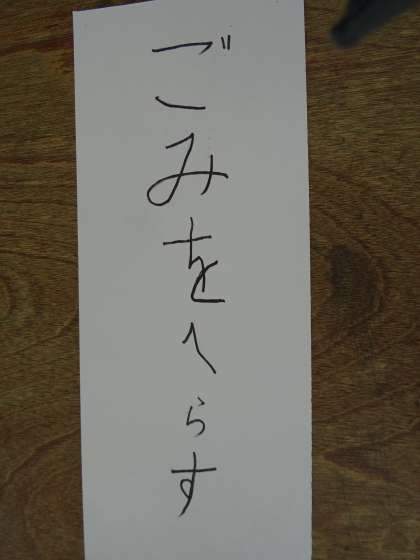 ごみをへらす